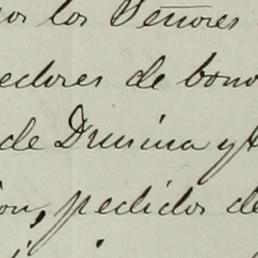 los Señores
edores de bono
de Drusina y
ion, pedidos de